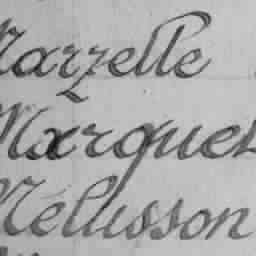 Marzelle
Marquet
Mélusson